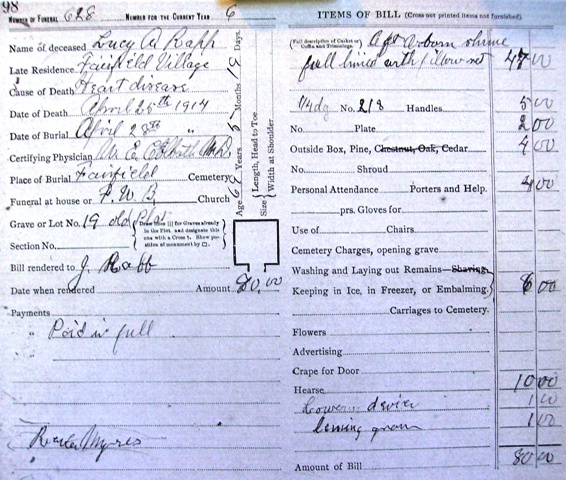 98
NUMBER OF FUNERAL 628 NUMBER FOR THE CURRENT YEAR 6
Name of deceased Lucy A Rapp
Late Residence Fairfield Village
Cause of Death Heart disease
Date of Death April 25th 1914
Date of Burial April 28th "
Certifying Physician M.D.
Place of Burial Fairfield Cemetery
Funeral at house or Church
Grave or Lot No. 19 old Plot
{Draw lines [||] for Graves already in the Plot, and designate this one with a Cross. Show position of monument by □.}
Section No.
Bill rendered to J. Rapp
Date when rendered Amount 80.00
Payments
" Paid in full
"
Age 63 Years Months 31 Days
Size { Length, Head to Toe
Width at Shoulder
ITEMS OF BILL (Cross out printed items not furnished).
(Full description of Casket or Coffin and Trimmings.)
full lined with pillow set 47 00
1/4 dg No. 218 Handles 5 00
No. Plate 2 00
Outside Box, Pine, Chestnut, Oak, Cedar 4 00
No. Shroud
Personal Attendance Porters and Help. 4 00
prs. Gloves for
Use of Chairs
Cemetery Charges, opening grave
Washing and Laying out Remains—Shaving,
Keeping in Ice, in Freezer, or Embalming.} 6 00
Carriages to Cemetery.
Flowers
Advertising
Crape for Door
Hearse 10 00
device 1 00
lining grave 1 00
Amount of Bill 80 00